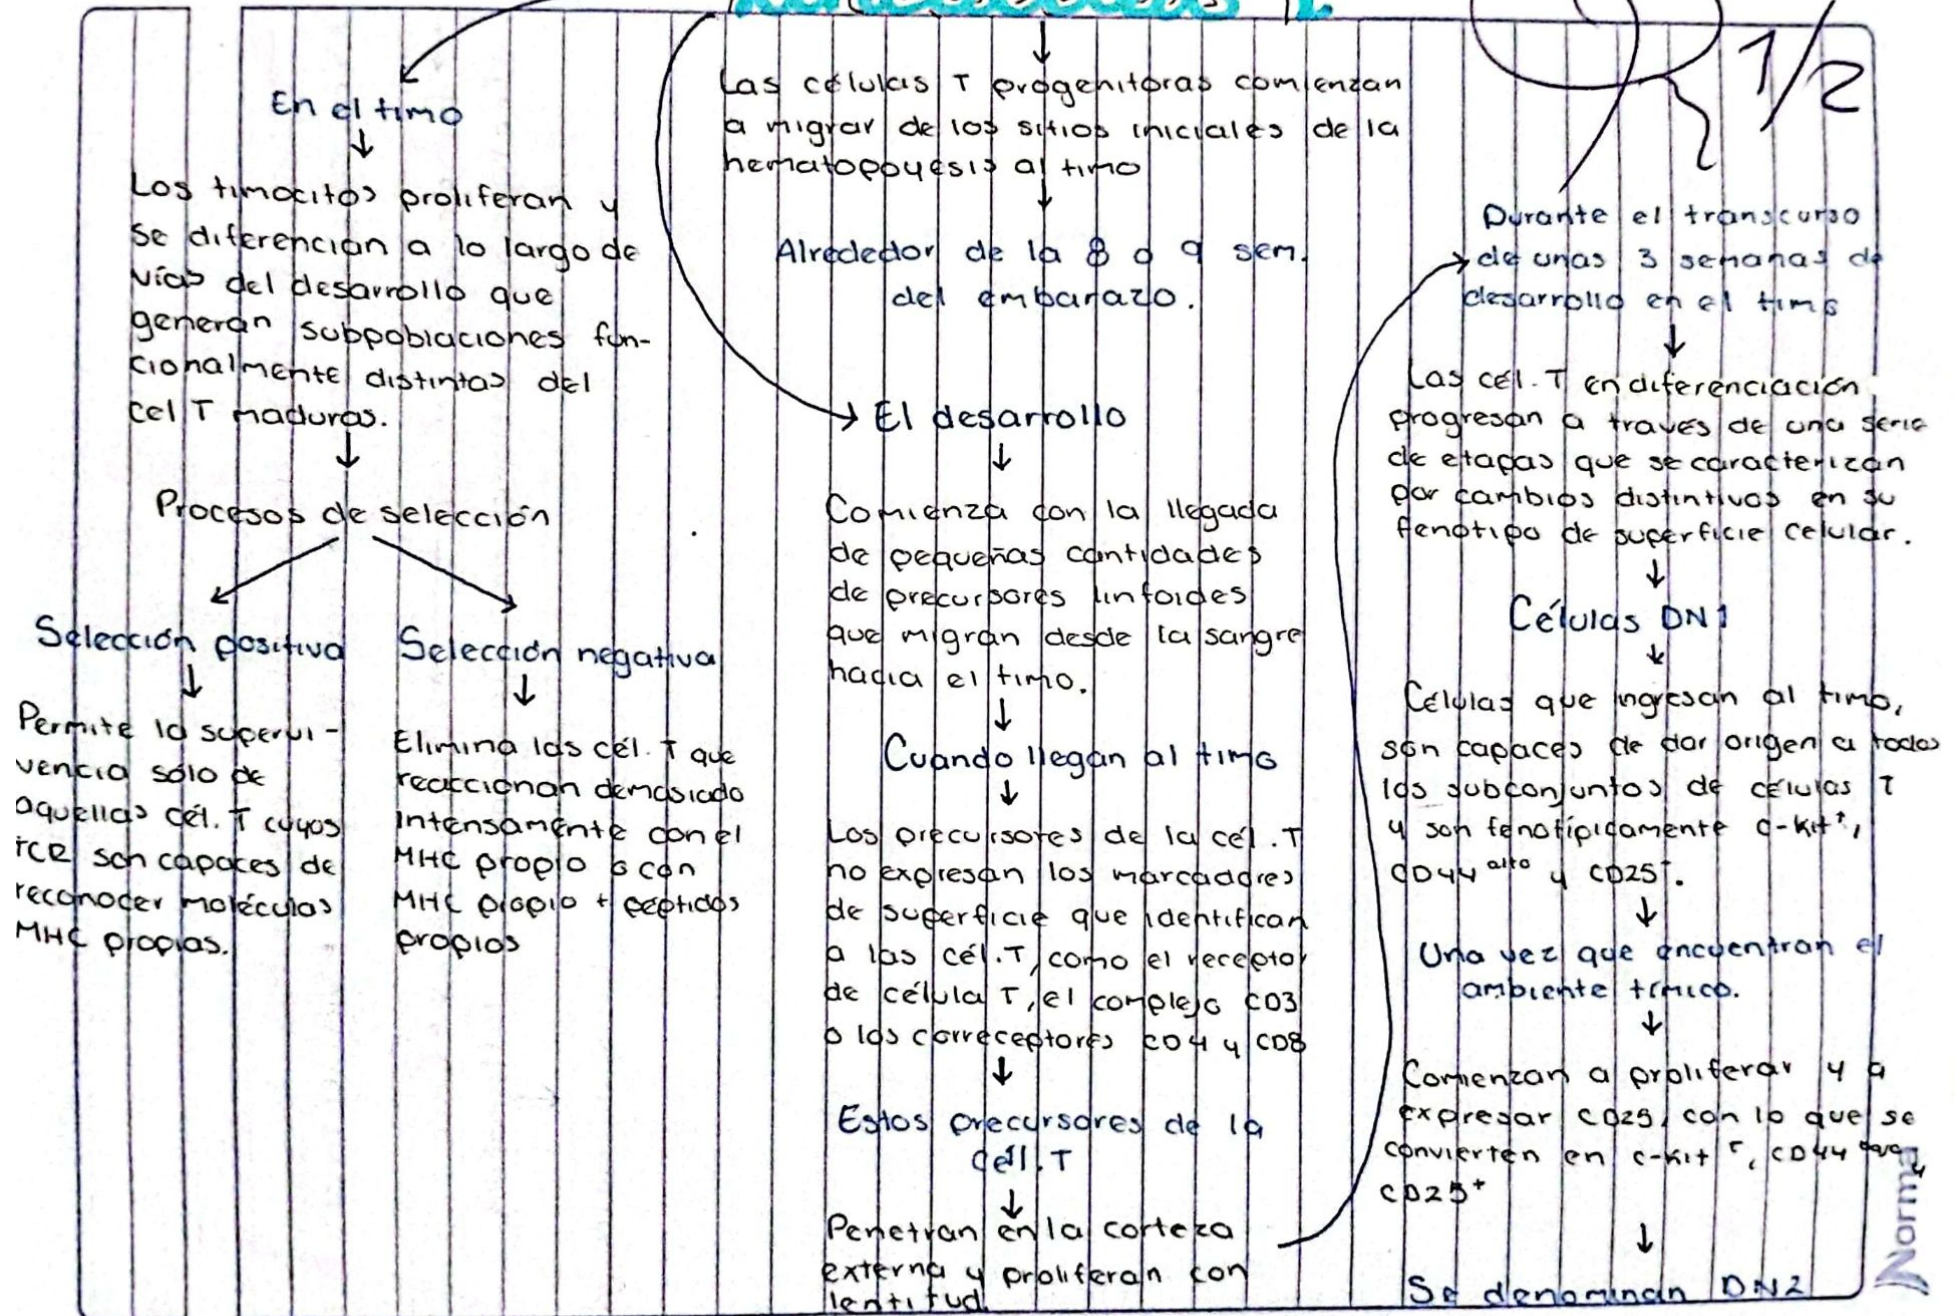 1/2
En el timo
Los timocitos proliferan y
se diferencian a lo largo de
vías del desarrollo que
generan subpoblaciones fun-
cionalmente distintas del
cel T maduras.
Procesos de selección
Selección positiva
Permite la supervi-
vencia sólo de
aquellas cél. T cuyos
TCR son capaces de
reconocer moléculas
MHC propias.
Selección negativa
Elimina las cél. T que
reaccionan demasiado
intensamente con el
MHC propio o con
MHC propio + péptidos
propios
Las células T progenitoras comienzan
a migrar de los sitios iniciales de la
hematopoyesis al timo
Alrededor de la 8 o 9 sem.
del embarazo.
El desarrollo
Comienza con la llegada
de pequeñas cantidades
de precursores linfoides
que migran desde la sangre
hacia el timo.
Cuando llegan al timo
Los precursores de la cél. T
no expresan los marcadores
de superficie que identifican
a las cél. T, como el receptor
de célula T, el complejo CD3
o los correceptores CD4 y CD8
Estos precursores de la
cél. T
Penetran en la corteza
externa y proliferan con
lentitud
Durante el transcurso
de unas 3 semanas de
desarrollo en el timo
Las cél. T en diferenciación
progresan a través de una serie
de etapas que se caracterizan
por cambios distintivos en su
fenotipo de superficie celular.
Células DN1
Células que ingresan al timo,
son capaces de dar origen a todos
los subconjuntos de células T
y son fenotípicamente c-kit⁺,
CD44 alto y CD25⁻.
Una vez que encuentran el
ambiente tímico.
Comienzan a proliferar y a
expresar CD25, con lo que se
convierten en c-kit⁺, CD44 y
CD25⁺
Se denominan DN2
Norma